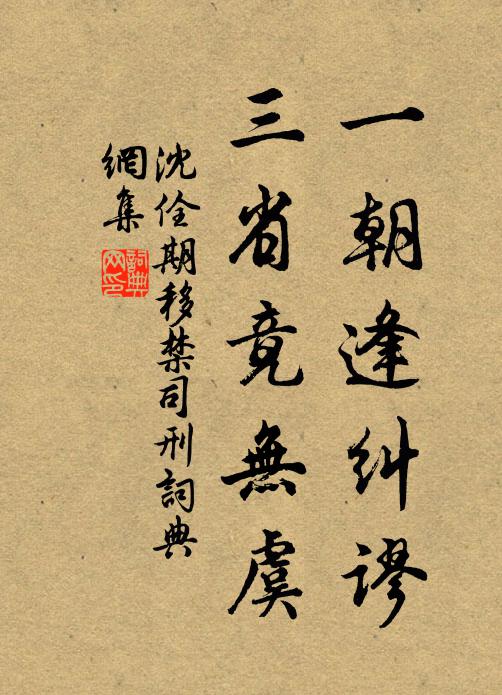 一朝逢糾謬
三省竟無虞
沈佺期移禁司刑詞典
網集
詞典網印